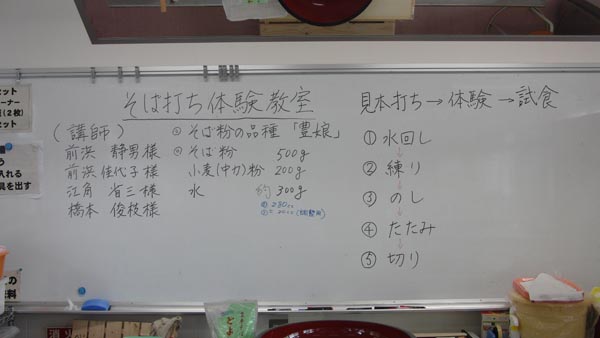 そば打ち体験教室
(講師)
前浜 静男様
前浜佳代子様
江角 省三様
橋本 俊枝様
そば粉の品種「豊娘」
そば粉 500g
小麦(中力)粉 200g
水 約300g
見本打ち→体験→試食
① 水回し
② 練り
③ のし
④ たたみ
⑤ 切り
セット
ーナー
(2枚)
セット
う
入れる
具を出す
の
料